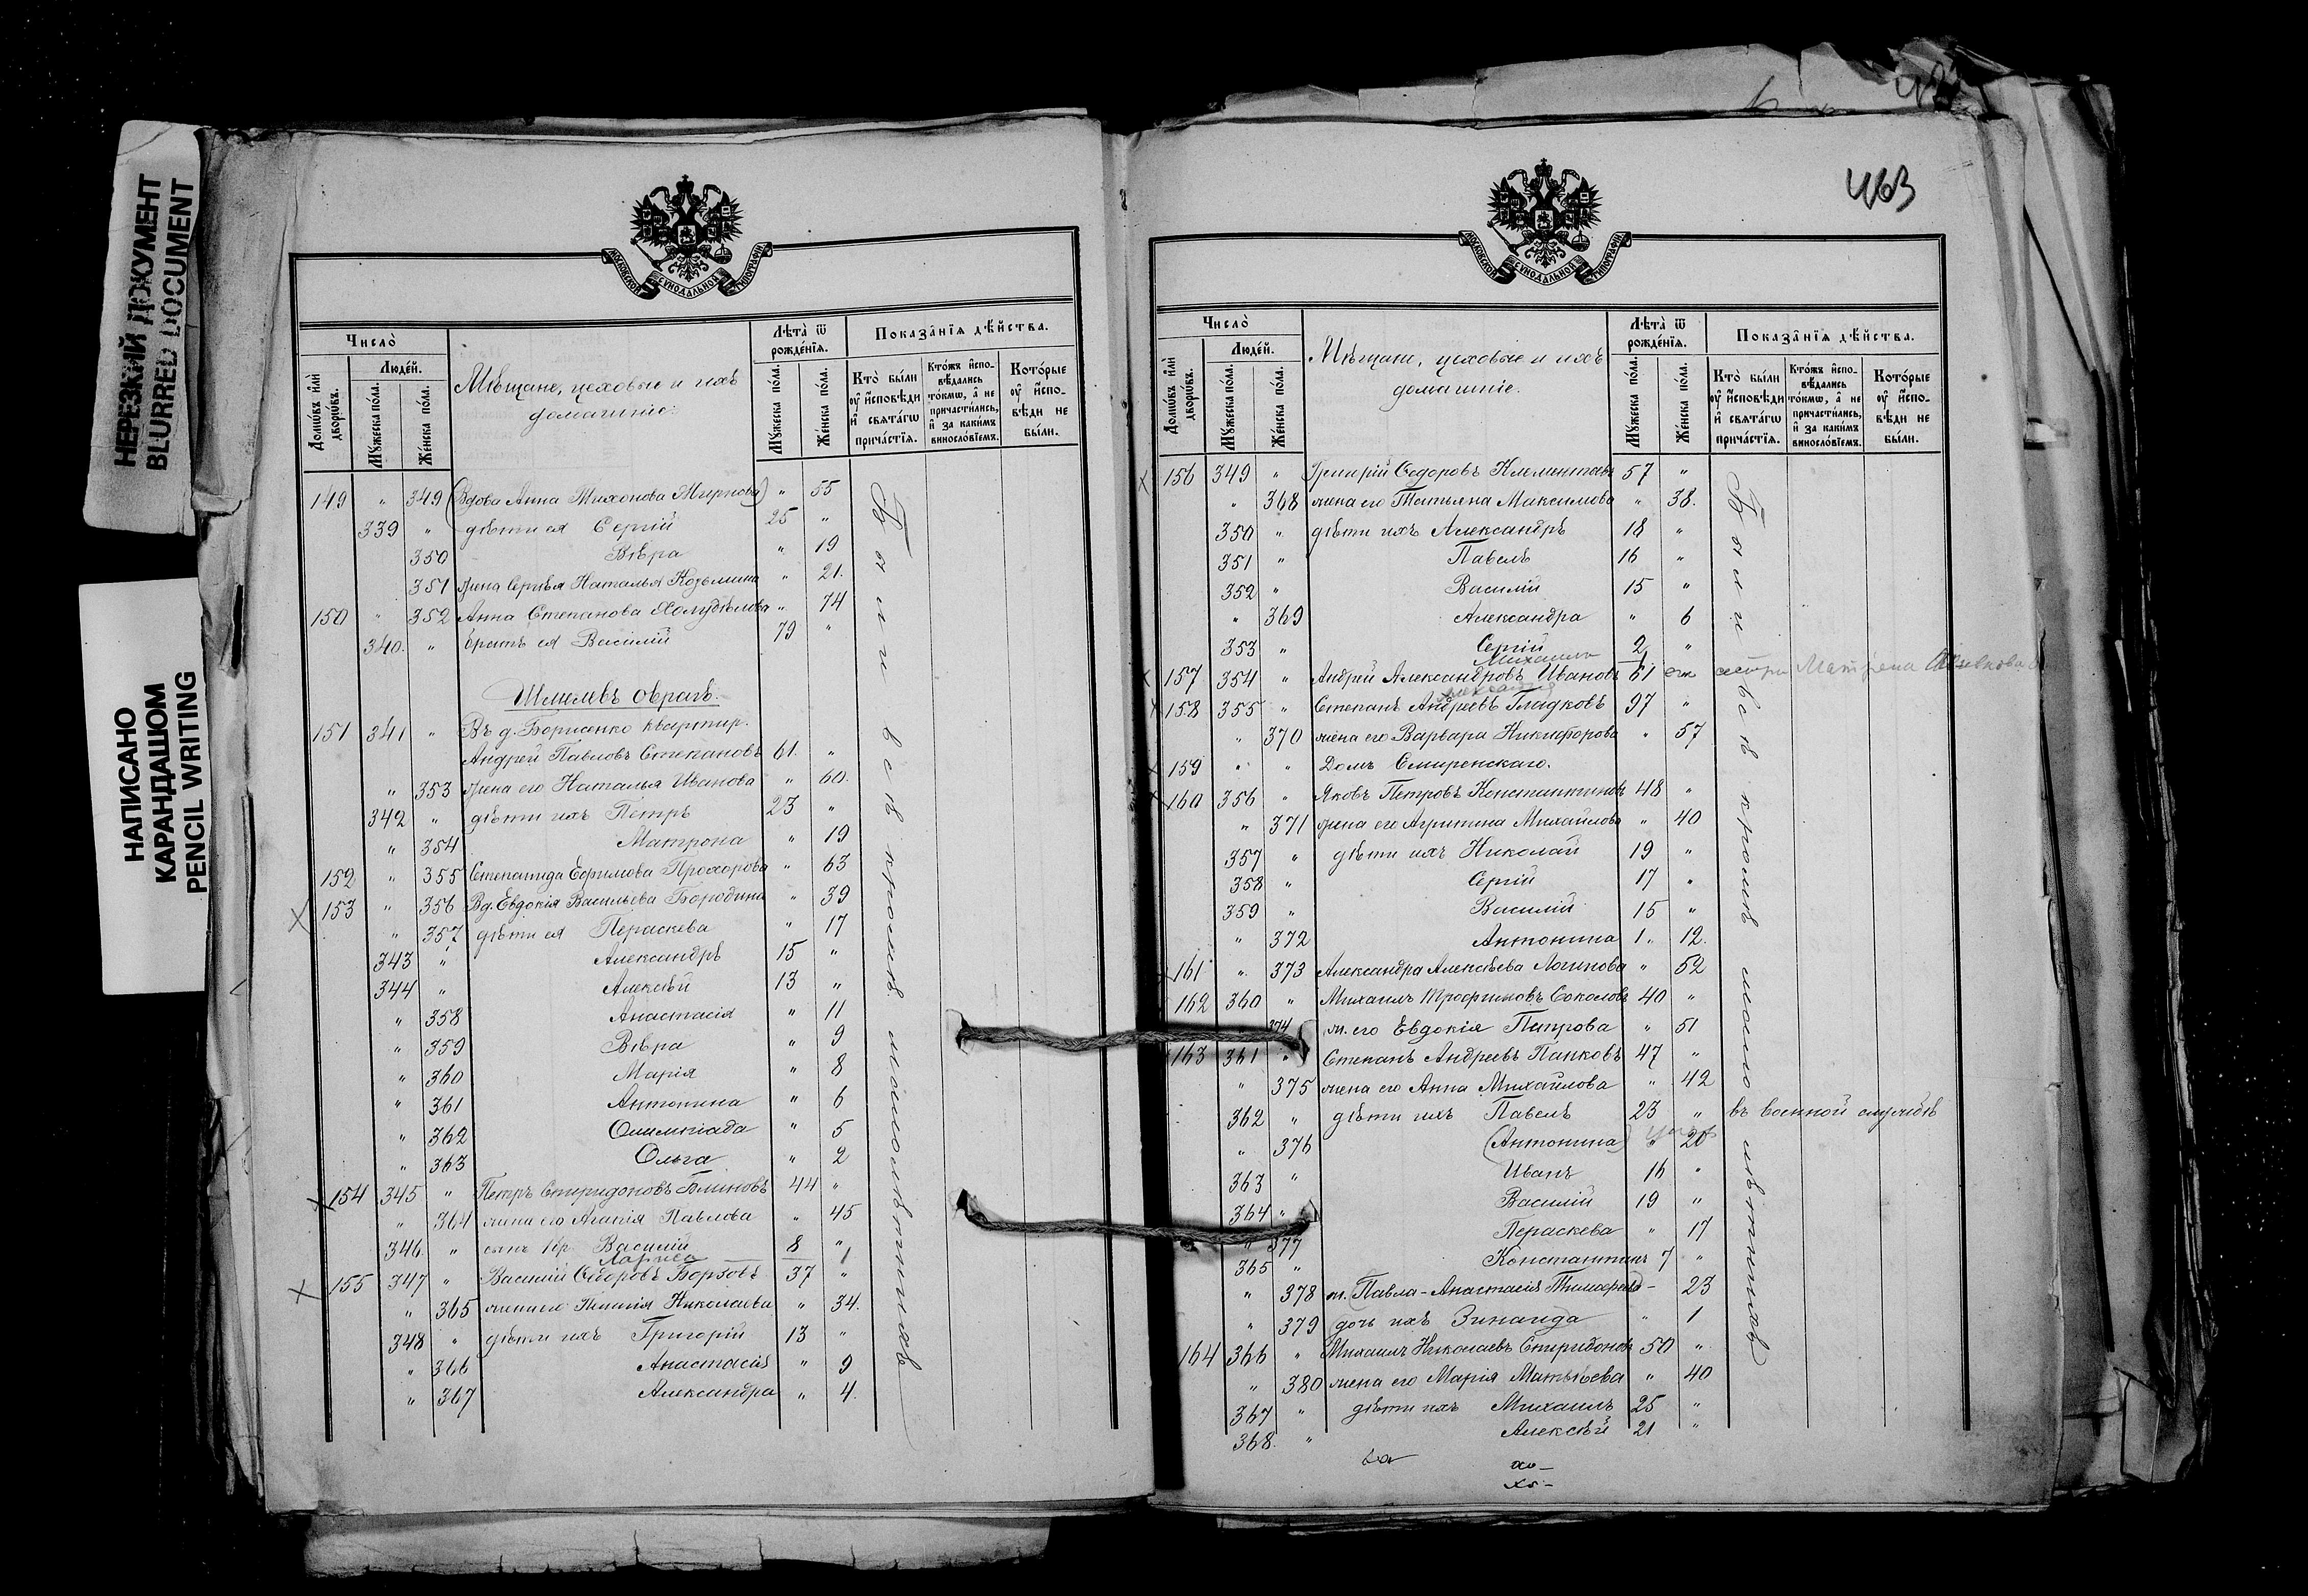 НЕРЕЗКИЙ ДОКУМЕНТ
BLURRED DOCUMENT
НАПИСАНО
КАРАНДАШОМ
PENCIL WRITING
МОСКОВСКОЙ СѴНОДАЛЬНОЙ ТИПОГРАФІИ
Число̀
Лѣта̀ ѿ рожде́нїѧ.
Показа̑нїѧ дѣ́йства.
Домѡ́въ и҆лѝ дворѡ́въ.
Люде́й.
Мꙋ́жеска по́ла.
Же́нска по́ла.
Мѣщане, цеховые и ихъ
домашніе.
Мꙋ́жеска по́ла.
Же́нска по́ла.
Кто̀ бы́ли ᲂу҆ и҆спо́вѣди и҆ свѧта́гѡ прича́стїѧ.
Кто́жъ и҆спо- вѣ́дались то́кмѡ, а҆ не причасти́лись, и҆ за каки́мъ виносло́вїемъ.
Кото́рые ᲂу҆ и҆спо- вѣди не бы́ли.
149 " 349 (Вдова Анна Тихонова) " 55
339 " дѣти ея Сергій 25 "
350 Вѣра " 19
351 жена Сергѣя Наталья Козьмина " 21.
150 " 352 Анна Степанова " 74
340. " братъ ея Василій 79 "
оврагъ.
151 341 " Въ д. Борисенко квартир.
Андрей Павловъ Степановъ 61. "
" 353 жена его Наталья Иванова " 60.
342 " дѣти ихъ Петръ 23 "
" 354 Матрона " 19
152 " 355 Степанида Ефимова Прохорова " 63
153 " 356 Вд. Евдокія Васильева Бородина " 39
" 357 дѣти ея Пераскева " 17
343 " Александръ 15 "
344 " Алексѣй 13 "
" 358 Анастасія " 11
" 359 Вѣра " 9
" 360 Марія " 8
" 361 Антонина " 6
" 362 Олимпіада " 5
" 363 Ольга " 2
154 345 " Петръ Спиридоновъ Блиновъ 44 "
" 364 жена его Агапія Павлова " 45
346. " сынъ Василій 8 "
Лариса 1
155 347 " Василій Ѳедоровъ Борзовъ 37 "
" 365 жена его Николаева " 34.
348 " дѣти ихъ Григорій 13 "
" 366 Анастасія " 9
" 367 Александра " 4.
Были всѣ кромѣ малолѣтнихъ
463
МОСКОВСКОЙ СѴНОДАЛЬНОЙ ТИПОГРАФІИ
Число̀
Лѣта̀ ѿ рожде́нїѧ.
Показа̑нїѧ дѣ́йства.
Домѡ́въ и҆лѝ дворѡ́въ.
Люде́й.
Мꙋ́жеска по́ла.
Же́нска по́ла.
Мѣщане, цеховые и ихъ
домашніе.
Мꙋ́жеска по́ла.
Же́нска по́ла.
Кто̀ бы́ли ᲂу҆ и҆спо́вѣди и҆ свѧта́гѡ прича́стїѧ.
Кто́жъ и҆спо- вѣ́дались то́кмѡ, а҆ не причасти́лись, и҆ за каки́мъ виносло́вїемъ.
Кото́рые ᲂу҆ и҆спо- вѣди не бы́ли.
156 349 " Ѳедоровъ Клементьевъ 57 "
" 368 жена его Татьяна Максимова " 38.
350 " дѣти ихъ Александръ 18 "
351 " Павелъ 16 "
352 " Василій 15 "
" 369 Александра " 6
353 " Сергій 2 "
Михаилъ 1
157 354 " Андрей Александровъ Ивановъ 61 его сестра Матрена
158 355 " Степанъ Андреевъ Гладковъ 97 "
" 370 жена его Варвара Никифорова " 57
159 " " Домъ Смиренскаго.
160 356 " Яковъ Петровъ Константиновъ 48 "
" 371 жена его Агрипина Михайлова " 40
357 " дѣти ихъ Николай 19 "
358 " Сергій 17 "
359 " Василій 15 "
" 372 Антонина 1" 12.
161 " 373 Александра Алексѣева Логинова " 52
162 360 " Михаилъ Трофимовъ Соколовъ 40 "
374 ж. его Евдокія Петрова " 51
163 361 " Степанъ Андреевъ Папковъ 47 "
" 375 жена его Анна Михайлова " 42
362 " дѣти ихъ Павелъ 23 " въ военной службѣ
" 376 (Антонина) " 20
363 " Иванъ 16 "
364 " Василій 19 "
" 377 Пераскева " 17
365 " Константинъ 7 "
" 378 ж. Павла - Анастасія - 23
" 379 дочь ихъ Зинаида " 1
164 366 " Михаилъ Николаевъ Спиридоновъ 50 "
" 380 жена его Марія Матвѣева " 40
367 " дѣти ихъ Михаилъ 25 "
368. " Алексѣй 21 "
Были всѣ кромѣ малолѣтнихъ